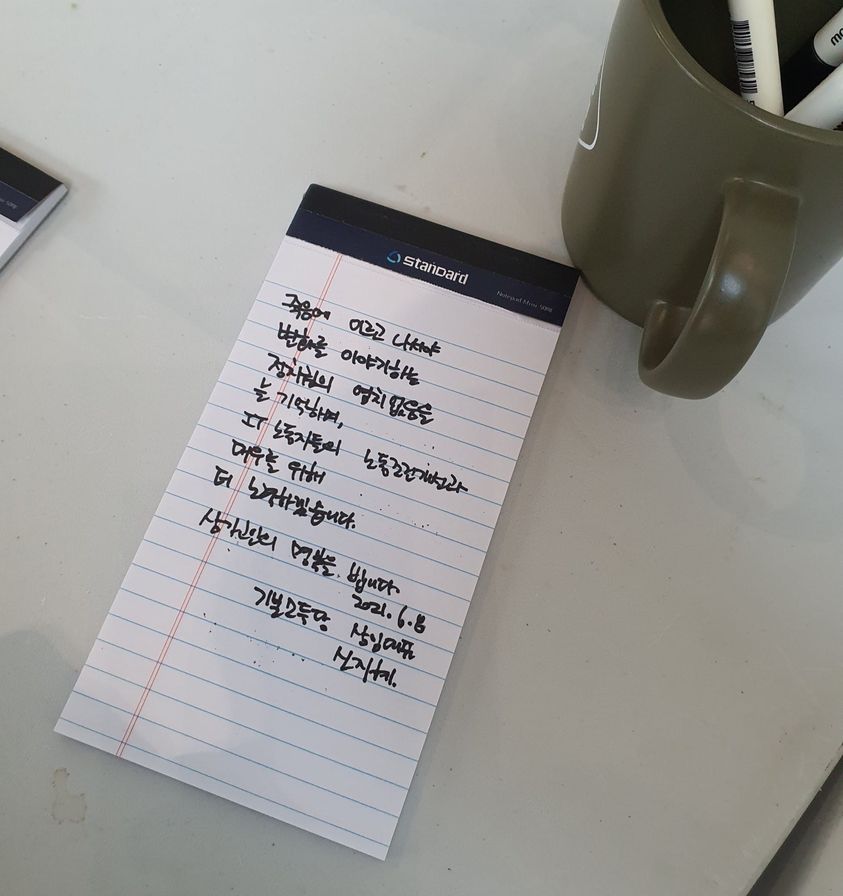 standard
Notepad Mini 50매
죽음에 이르고 나서야
변화를 이야기하는
정치권의 염치 없음을
늘 기억하며,
IT 노동자들의 노동조건개선과
대우를 위해
더 노력하겠습니다.
삼가고인의 명복을 빕니다.
2021. 6. 8
기본소득당 상임대표
신지혜.